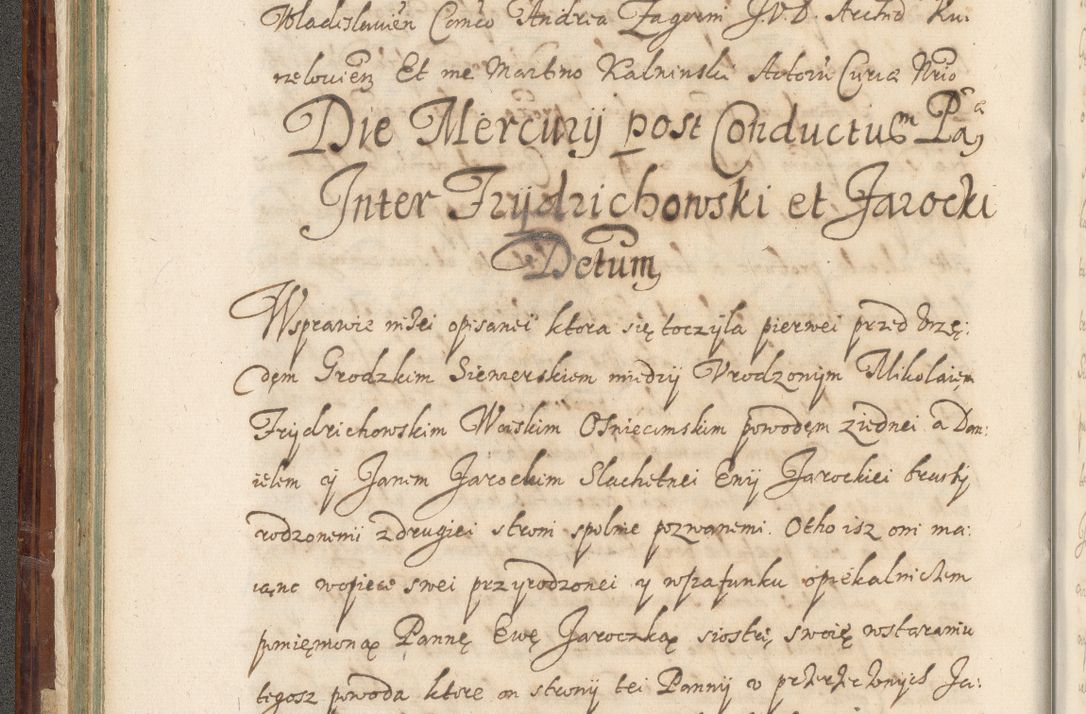 Wladislavien Cancō Andrea Zagorni J.V.D. Archid Ku:
rzelovien Et me Martino Kalninski Actorū Curiæ Nrio
Die Mercurij post Conductum Pa
Inter Frijdrichowski et Jarocki
Detum
Wsprawie niżei opisanei ktora się toczyla pierwei przed Vrzę:
dem Grodzkim Siewierskiem miedzij Vrodzonijm Mikolaiem
Frijdrichowskim Woiskim Oswiecimskim powodęm ziednei a Dan:
ielem ij Janem Jarockim Slachetnei Ewij Jarockiei braciij
rodzonemi zdrugiei stroni spolnie pozwanemi. Otho isz oni ma:
iąnc wopiece swei przyrodzonei y wszafunku opiekalnickem
pomięnionąx Pannę Ewę Jaroczkąx siostrę swoię wstaraniu
tegosz powoda ktore on stronij tei Pannij v przerzeczonijch Ja: